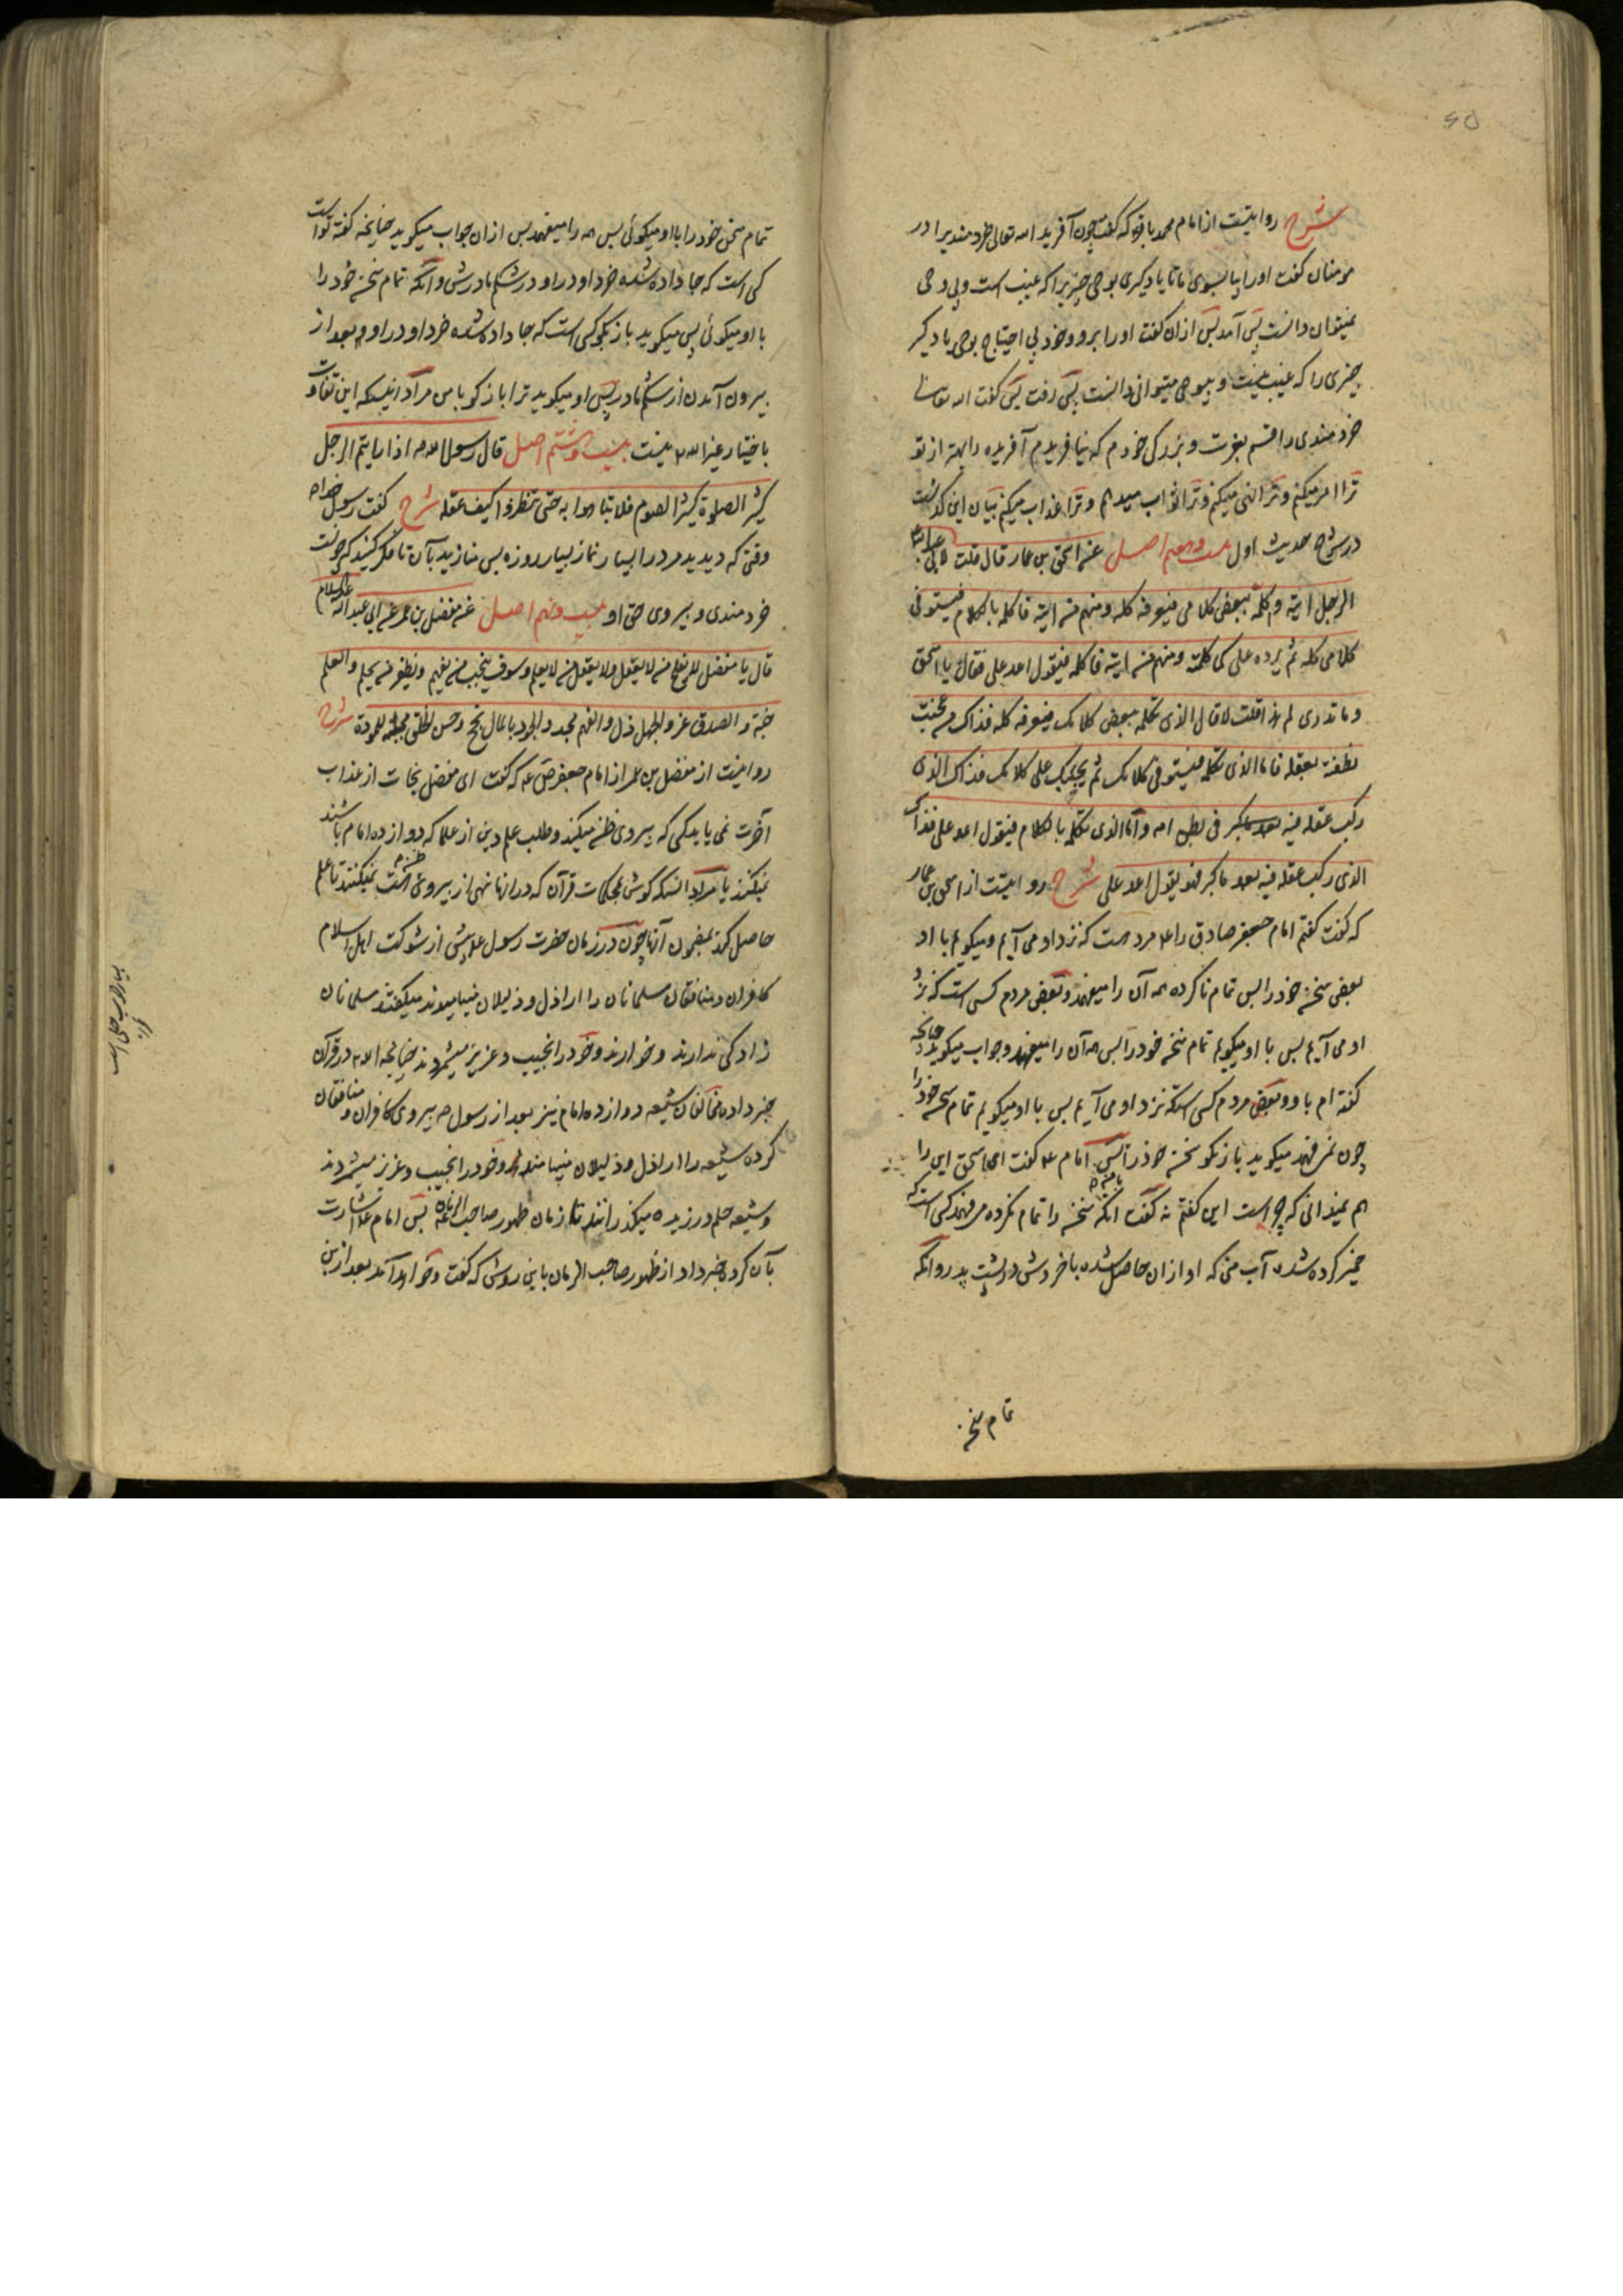 شرح روایتست از امام محمد باقر ع که گفت چون آفرید الله تعالی خردمندیرا در
مومنان گفت او را بیا بسوی ما تا یاد گیری بوحی چیزیرا که غیب است و بی وحی
نمیتوان دانست پس آمد پس ازان گفت او را برو و خود بی احتیاج بوحی یاد گیر
چیزی را که غیب نیست و بیوحی میتوانی دانست پس رفت پس گفت الله تعالی
خردمندی را قسم بعزت و بزرگی خودم که نیافریدم آفریده را بهتر از تو
ترا امر میکنم و ترا نهی میکنم و ترا ثواب میدهم و ترا عذاب میکنم بیان این گذشت
در شرح حدیث اول بیست و هفتم اصل عن اسحق بن عمار قال قلت لابی عبد الله ع
الرجل اتیه و کلمه ببعض کلامی فیعرفه کله و منهم من اتیه فاکلمه بالکلام فیستوفی
کلامی کله ثم یرده علی کما کلمته و منهم من اتیه فاکلمه فیقول اعد علی فقال یا اسحق
و ما تدری لم هذا قلت لا قال الذی تکلمه ببعض کلامک فیعرفه کله فذاک من عجنت
نطفته بعقله فاما الذی تکلمه فیستوفی کلامک ثم یجیبک علی کلامک فذاک الذی
رکب عقله فیه فی بطن امه و اما الذی تکلمه بالکلام فیقول اعد علی فذاک
الذی رکب عقله فیه بعد ما کبر فهو یقول اعد علی شرح روایتست از اسحق بن عمار
که گفت گفتم امام جعفر صادق را ع مرد هست که نزد او می آیم و میگویم با او
بعض سخن خود را پس تمام ناکرده همه آن را میفهمد و بعض مردم کسی است که نزد
او می آیم پس با او میگویم تمام سخن خود را پس همه آن را میفهمد و جواب میگوید چنانچه
گفته ام با او و بعض مردم کسی استکه نزد او می آیم پس با او میگویم تمام سخن خود را
چون نمی فهمد میگوید بازگو سخن خود را پس امام ع گفت ای اسحق این را
هم نمیدانی که چرا است این گفتم نه گفت آنکه سخن را تمام نکرده می فهمد کسی است که
خمیر کرده شده آب منی که او ازان حاصل شده با خردش در پشت پدر و آنکه
تمام سخن
تمام سخن خود را با او میگوئی پس همه را میفهمد پس ازان جواب میگوید چنانچه گفته تو است
کسی است که جا داده شده خرد او در او در شکم مادرش و آنکه تمام سخن خود را
با او میگوئی پس میگوید باز بگو کسی است که جا داده شده خرد او در او بعد از
بیرون آمدن از شکم مادر پس او میگوید ترا بازگو با من مراد اینستکه این تفاوت
باختیار غیر الله نیست بیست و هشتم اصل قال رسول الله ص اذا رایتم الرجل
کثیر الصلوة کثیر الصوم فلا تباهوا به حتی تنظروا کیف عقله شرح گفت رسول خدا ص
وقتی که دیدید مرد را بسیار نماز بسیار روزه پس منازید بآن تا فکر کنید که چونست
خردمندی و پیروی حق او بیست و نهم اصل عن مفضل بن عمر عن ابی عبد الله علیه السلام
قال یا مفضل لا یفلح من لا یعقل و لا یعقل من لا یعلم و سوف ینجب من یفهم و یظفر من یحلم و العلم
جنة و الصدق عز و الجهل ذل و الفهم مجد و الجود بالمال نجح و حسن الخلق مجلبة للمودة شرح
روایتست از مفضل بن عمر از امام جعفر ص ع که گفت ای مفضل نجات از عذاب
آخرت نمی یابد کسی که پیروی ظن میکند و طلب علم دین از علما که دوازده امام باشند
نمیکند یا مراد آنستکه گوش بمحکمات قرآن که در آنها نهی از پیروی ظن هست نمیکنند تا علم
حاصل کند بمضمون آنها چون در زمان حضرت رسول ع پیش از شوکت اهل اسلام
کافران و منافقان مسلمانان را اراذل و ذلیلان مینامیدند میگفتند مسلمانان
زادگی ندارند و خوارند و خود را نجیب و عزیز میشمردند چنانچه الله در قرآن
خبر داده مخالفان شیعه دوازده امام نیز بعد از رسول ص پیروی کافران و منافقان
کرده شیعه را اراذل و ذلیلان مینامند و خود را نجیب و عزیز میشمردند
و شیعه حلم ورزیده میگذرانند تا زمان ظهور صاحب الزمان پس امام ع اشارت
بآن کرد و خبر داد از ظهور صاحب الزمان باین روش که گفت و خواهد آمد بعد ازین